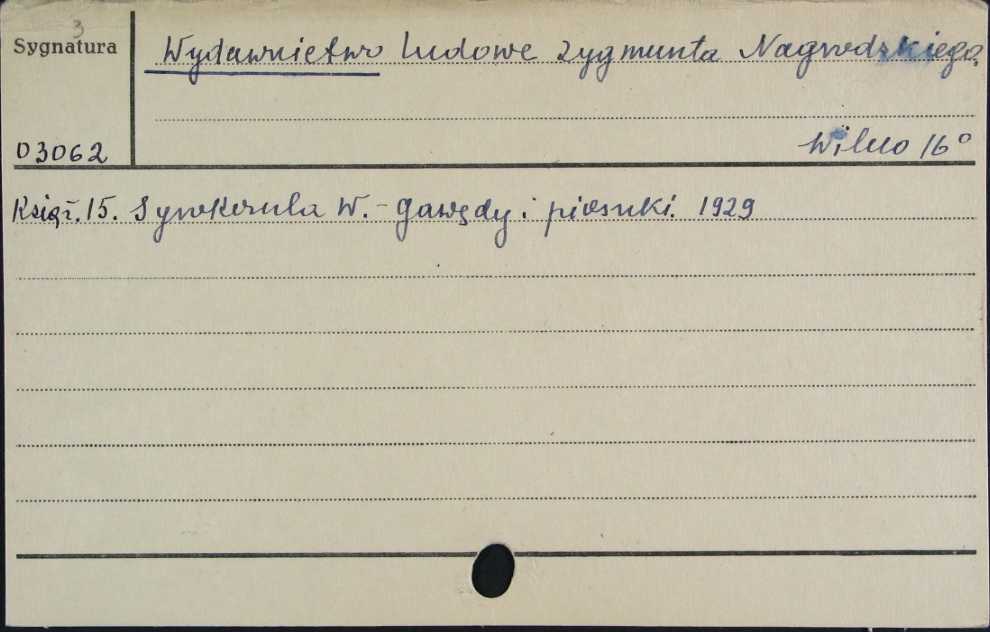 3
Sygnatura
Wydawnictwo Ludowe Zygmunta Nagrodzkiego.
Wilno 16°
03062
Książ. 15. Syrokomla W. - Gawędy i piosnki. 1929